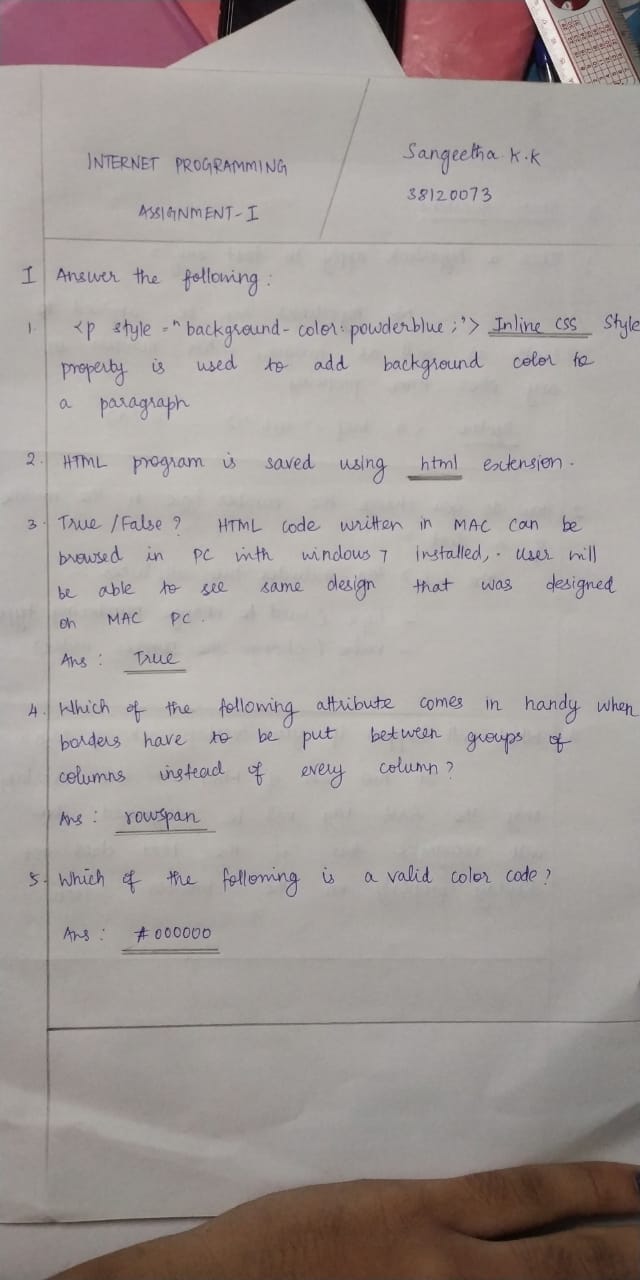 INTERNET PROGRAMMING
ASSIGNMENT-I
Sangeetha K.K
38120073
I Answer the following:
1. <p style ="background-color:powderblue;"> Inline css Style
property is used to add background color to
a paragraph
2. HTML program is saved using html extension.
3. True/False? HTML code written in MAC can be
browsed in PC with windows 7 installed,. User will
be able to see same design that was designed
on MAC PC.
Ans: True
4. Which of the following attribute comes in handy when
borders have to be put between groups of
columns instead of every column?
Ans: rowspan
5. Which of the following is a valid color code?
Ans: #000000